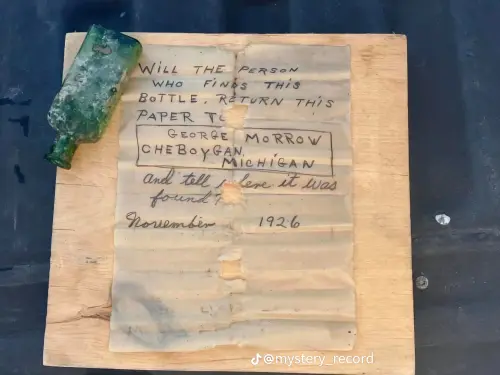 WILL THE PERSON
WHO FINDS THIS
BOTTLE. RETURN THIS
PAPER TO
GEORGE MORROW
CHEBOYGAN,
MICHIGAN
and tell where it was
found?
November 1926
@mystery_record